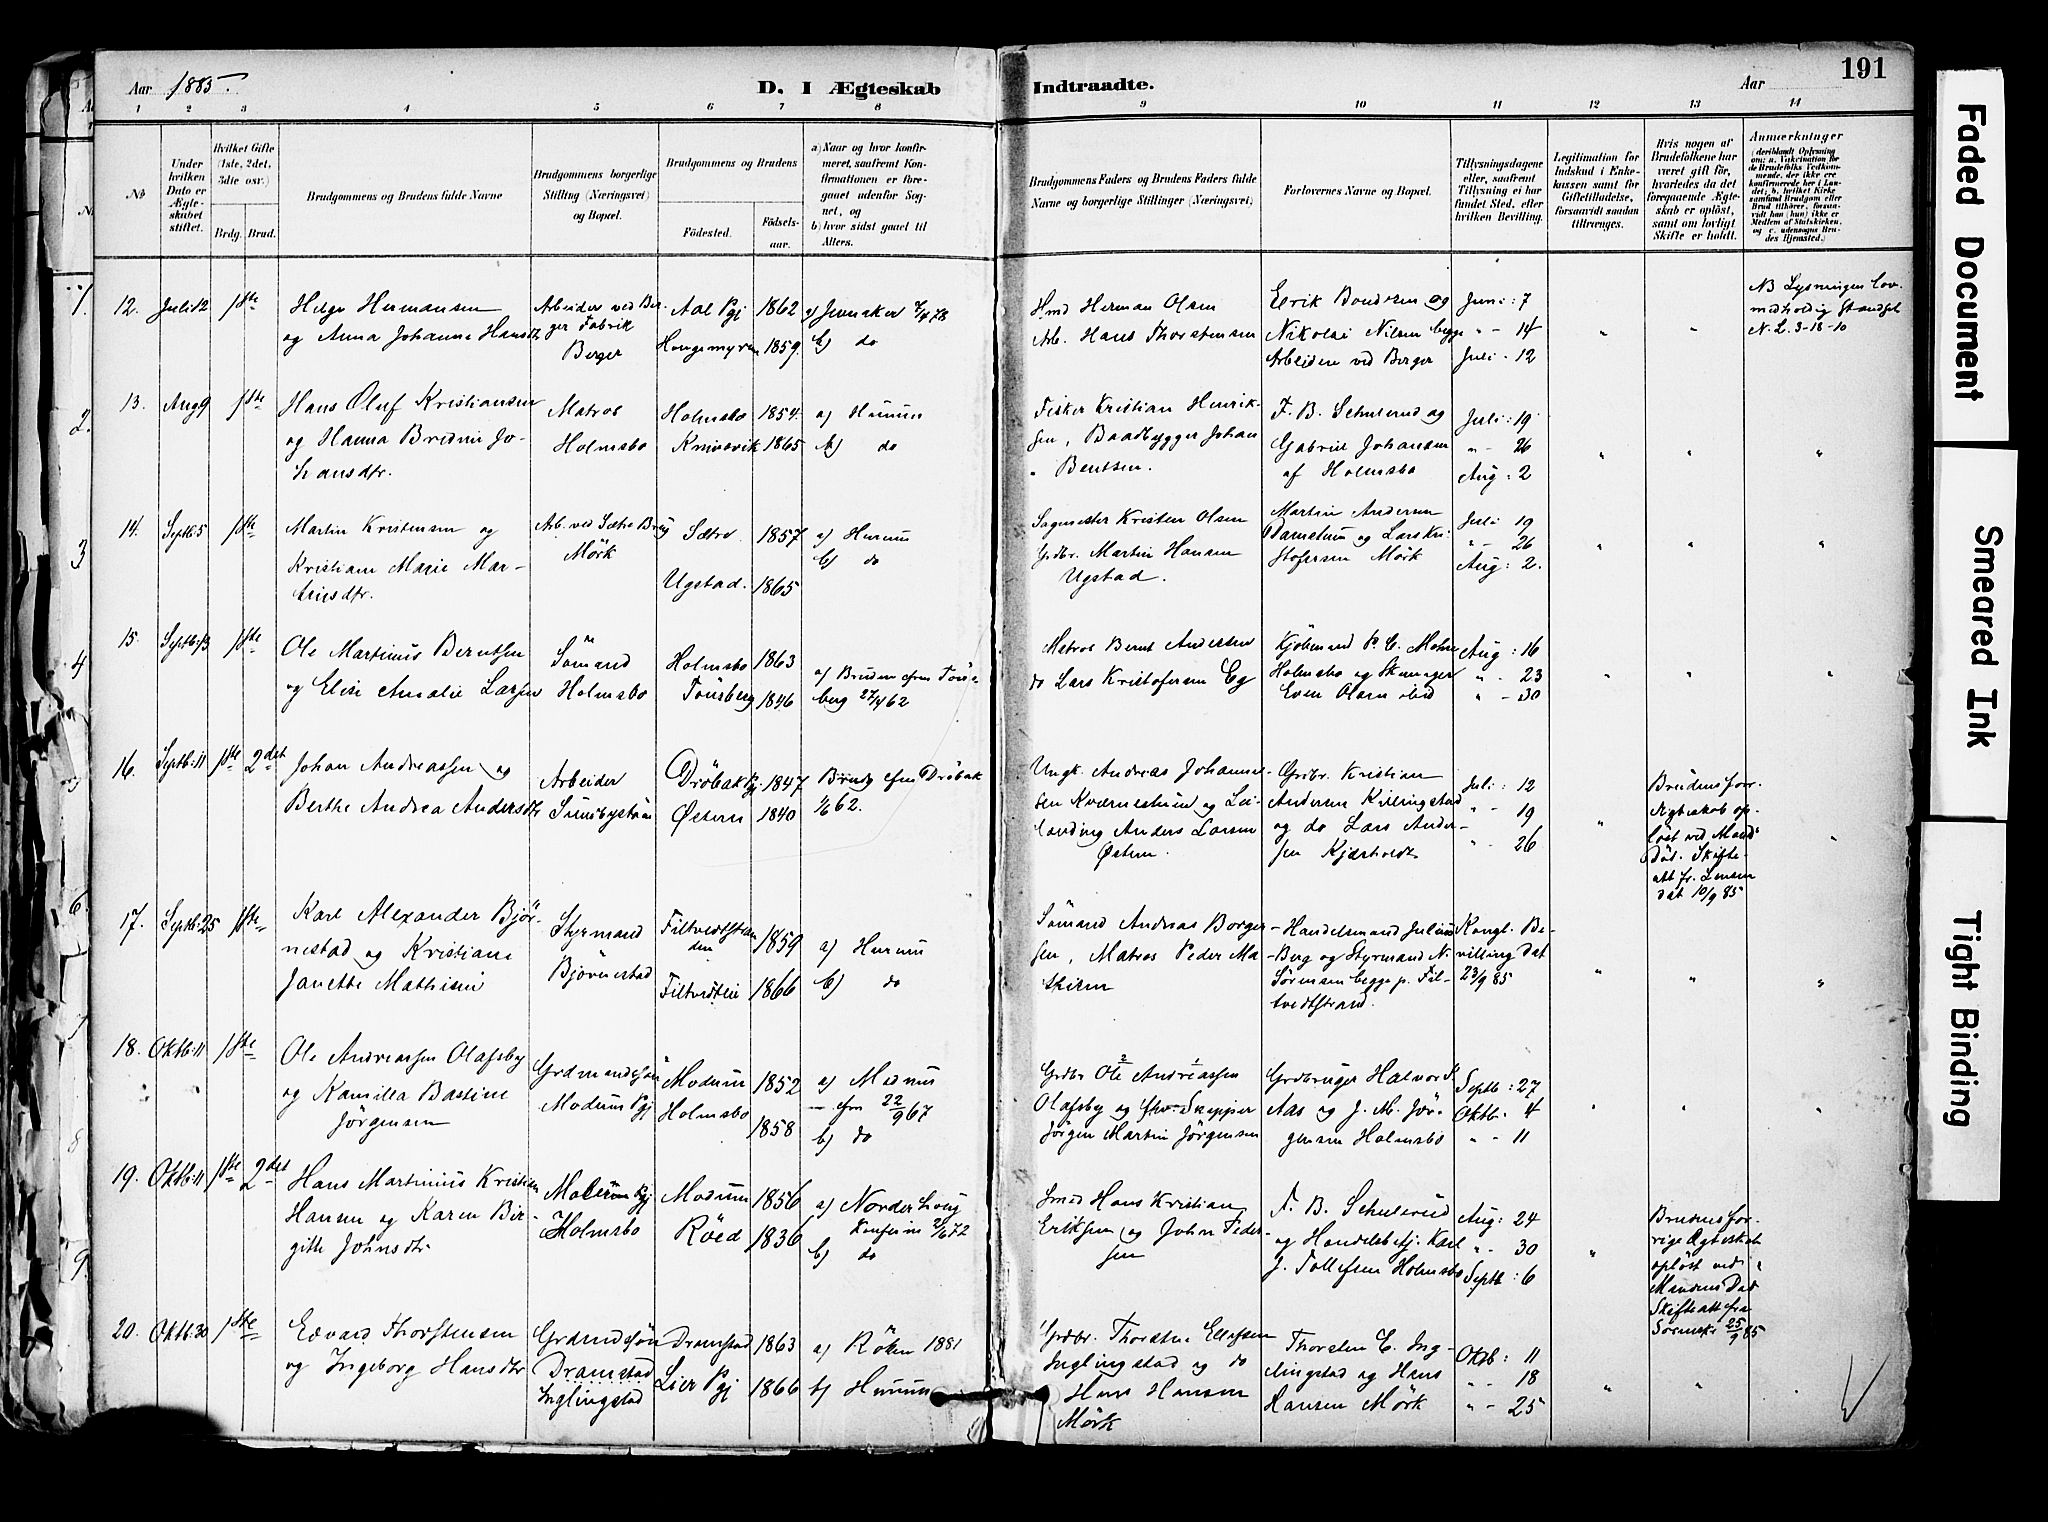 191
Aar 1885.
D. I Ægteskab Indtraadte.
Aar
1 2 3 4 5 6 7 8 9 10 11 12 13 14
No
Under hvilken Dato er Ægteskabet stiftet.
Hvilket Gifte (1ste, 2det, 3die osv.)
Brdg. Brud.
Brudgommens og Brudens fulde Navne
Brudgommens borgerlige Stilling (Næringsvei) og Bopæl.
Brudgommens og Brudens
Fødested.
Fødselsaar.
a) Naar og hvor konfirmeret, saafremt Konfirmationen er foregaaet udenfor Sognet, og
b) hvor sidst gaaet til Alters.
Brudgommens Faders og Brudens Faders fulde Navne og borgerlige Stillinger (Næringsvei)
Forlovernes Navne og Bopæl.
Tillysningsdagene eller, saafremt Tillysning ei har fundet Sted, efter hvilken Bevilling.
Legitimation for Indskud i Enkekassen samt for Giftetilladelse, forsaavidt saadan tiltrænges.
Hvis nogen af Brudefolkene har været gift før, hvorledes da det foregaaende Ægteskab er opløst, samt om lovligt Skifte er holdt.
Anmærkninger
(deriblandt Oplysning om: a. Vakcination for de Brudefolks Vedkommende, der ikke ere konfirmerede her i Landet; b. hvilket Kirkesamfund Brudgom eller Brud tilhører, forsaavidt han (hun) ikke er Medlem af Statskirken, og c. udensogns Brudes Hjemsted.)
12. Juli 12 1ste
Helge Hermansen
og Anna Johanne Hansdtr
Arbeider ved Ber-
ger Fabrik
Berger
Aal Pgj 1862
1859.
b) do
Hmd Herman Olsen
Arb. Hans Thorstensen
Nikolai Nilsen begge
Arbeidere ved Berger
Juni : 7
" - 14
Juli - 12
NB Lysningen lov-
medholdig
N. L. 3-18-10
13. Aug 9 1ste
Hans Oluf Kristiansen
og Hanna Jo-
hansdtr.
Matros
Holmsbo
Holmsbo 1854.
1865
a) Hurum
b) do
Fisker Kristian Henrik-
sen, Baadbygger Johan
" Bentsen.
F. B. Schulerud og
Gabriel Johansen
af Holmsbo
Juli : 19
" - 26
Aug : 2
14. Septb: 5 1ste
Martin Kristensen og
Kristiane Marie Mar-
tinsdtr.
Arb. ved Sætre Brug
Mörk
Sætre 1857
Ugstad. 1865
a) Hurum
b) do
Sagmester Kristen Olsen
Grdbr. Martin Hansen
Ugstad.
Martin Andersen
og Lars Kri-
stofersen Mörk
Juli 19
" - 26
Aug : 2.
15. Septb: 13 1ste
Ole Martinus Berntsen
og Elise Amalie Larsen
Sömand
Holmsbo
Holmsbo 1863
Tönsberg 1846
a) Bruden cfm Töns-
berg 27/4 62
Matros Bernt Andersen
do Lars Kristofersen Eg
Kjöbmand P. C. Mohn
Holmsbo og
Even Olsen ibid
Aug : 16
" - 23
" - 30
16. Septb: 11 1ste 2det
Johan Andreassen og
Berthe Andrea Andersdtr
Arbeider
Dröbak Pgj. 1847
Østern 1840
Brud cfm Dröbak
62.
Ungk. Andreas Johanne-
sen Kværnestuen og Lei-
lending Anders Larsen
Østern.
Grdbr. Kristian
Andersen Killingstad
og do Lars Ander-
sen Kjærholdt
Juli : 12
" - 19
" - 26
Brudens for-
Ægteskab op-
löst ved Mand
Död. Skifte-
att fr.
dat 10/9 85
17. Septb: 25 1ste
Karl Alexander Björ-
nestad og Kristiane
Janette Mathisen
Styrmand
Björnestad
1859
Filtvedteie 1866
a) Hurum
b) do
Sömand Andreas Borger-
sen, Matros Peder Ma-
thisen
Handelsmand Julius
Berg og Styrmand N.
Sörensen begge p. Fil-
tvedtstrand.
Kongl. Be-
villing Dat
23/9 85
18. Oktb: 11 1ste
Ole Andreassen Olafsby
og Kamilla Bastine
Jörgensen
Grdmandssön
Modum Pgj
Modum 1852
Holmsbo
1858
a) Modum
- cfm 22/9 67
b) do
Grdbr Ole Andreassen
Olafsby og fhv. Skipper
Jörgen Martin Jörgensen
Grdbruger Halvor
Aas og J. M. Jör-
gensen Holmsbo
Septb : 27
Oktb : 4
" - 11
19. Oktb: 11 1ste 2det
Hans Martinius Kristian
Hansen og Karen Bir-
gitte Johnsdtr
Holmsbo
Modum 1856
Röed 1836
a) Norderhoug
b) do
Smed Hans Kristian
Eriksen og John Peder-
sen
F. B. Schulerud
og Handelsbetj. Karl
J. Tollefsen Holmsbo
Aug : 24
" - 30
Septb : 6
Brudens for-
rige Ægteskab
oplöst ved
Mandens Död
Skifteatt fra
25/9 85
20. Oktb: 30 1ste
Edvard Thorstensen
og Ingeborg Hansdtr
Grdmandssön
Dramstad
Inglingstad
Dramstad 1863
Lier Pgj 1866
a) Röken 1881
b) Hurum
Grdbr. Thorsten Ellefsen
Inglingstad og do
Hans Hansen
Mörk
Thorsten E. Ing-
lingstad og Hans
Hansen Mörk
Oktb : 11
" - 18
" - 25
Faded Document
Smeared Ink
Tight Binding